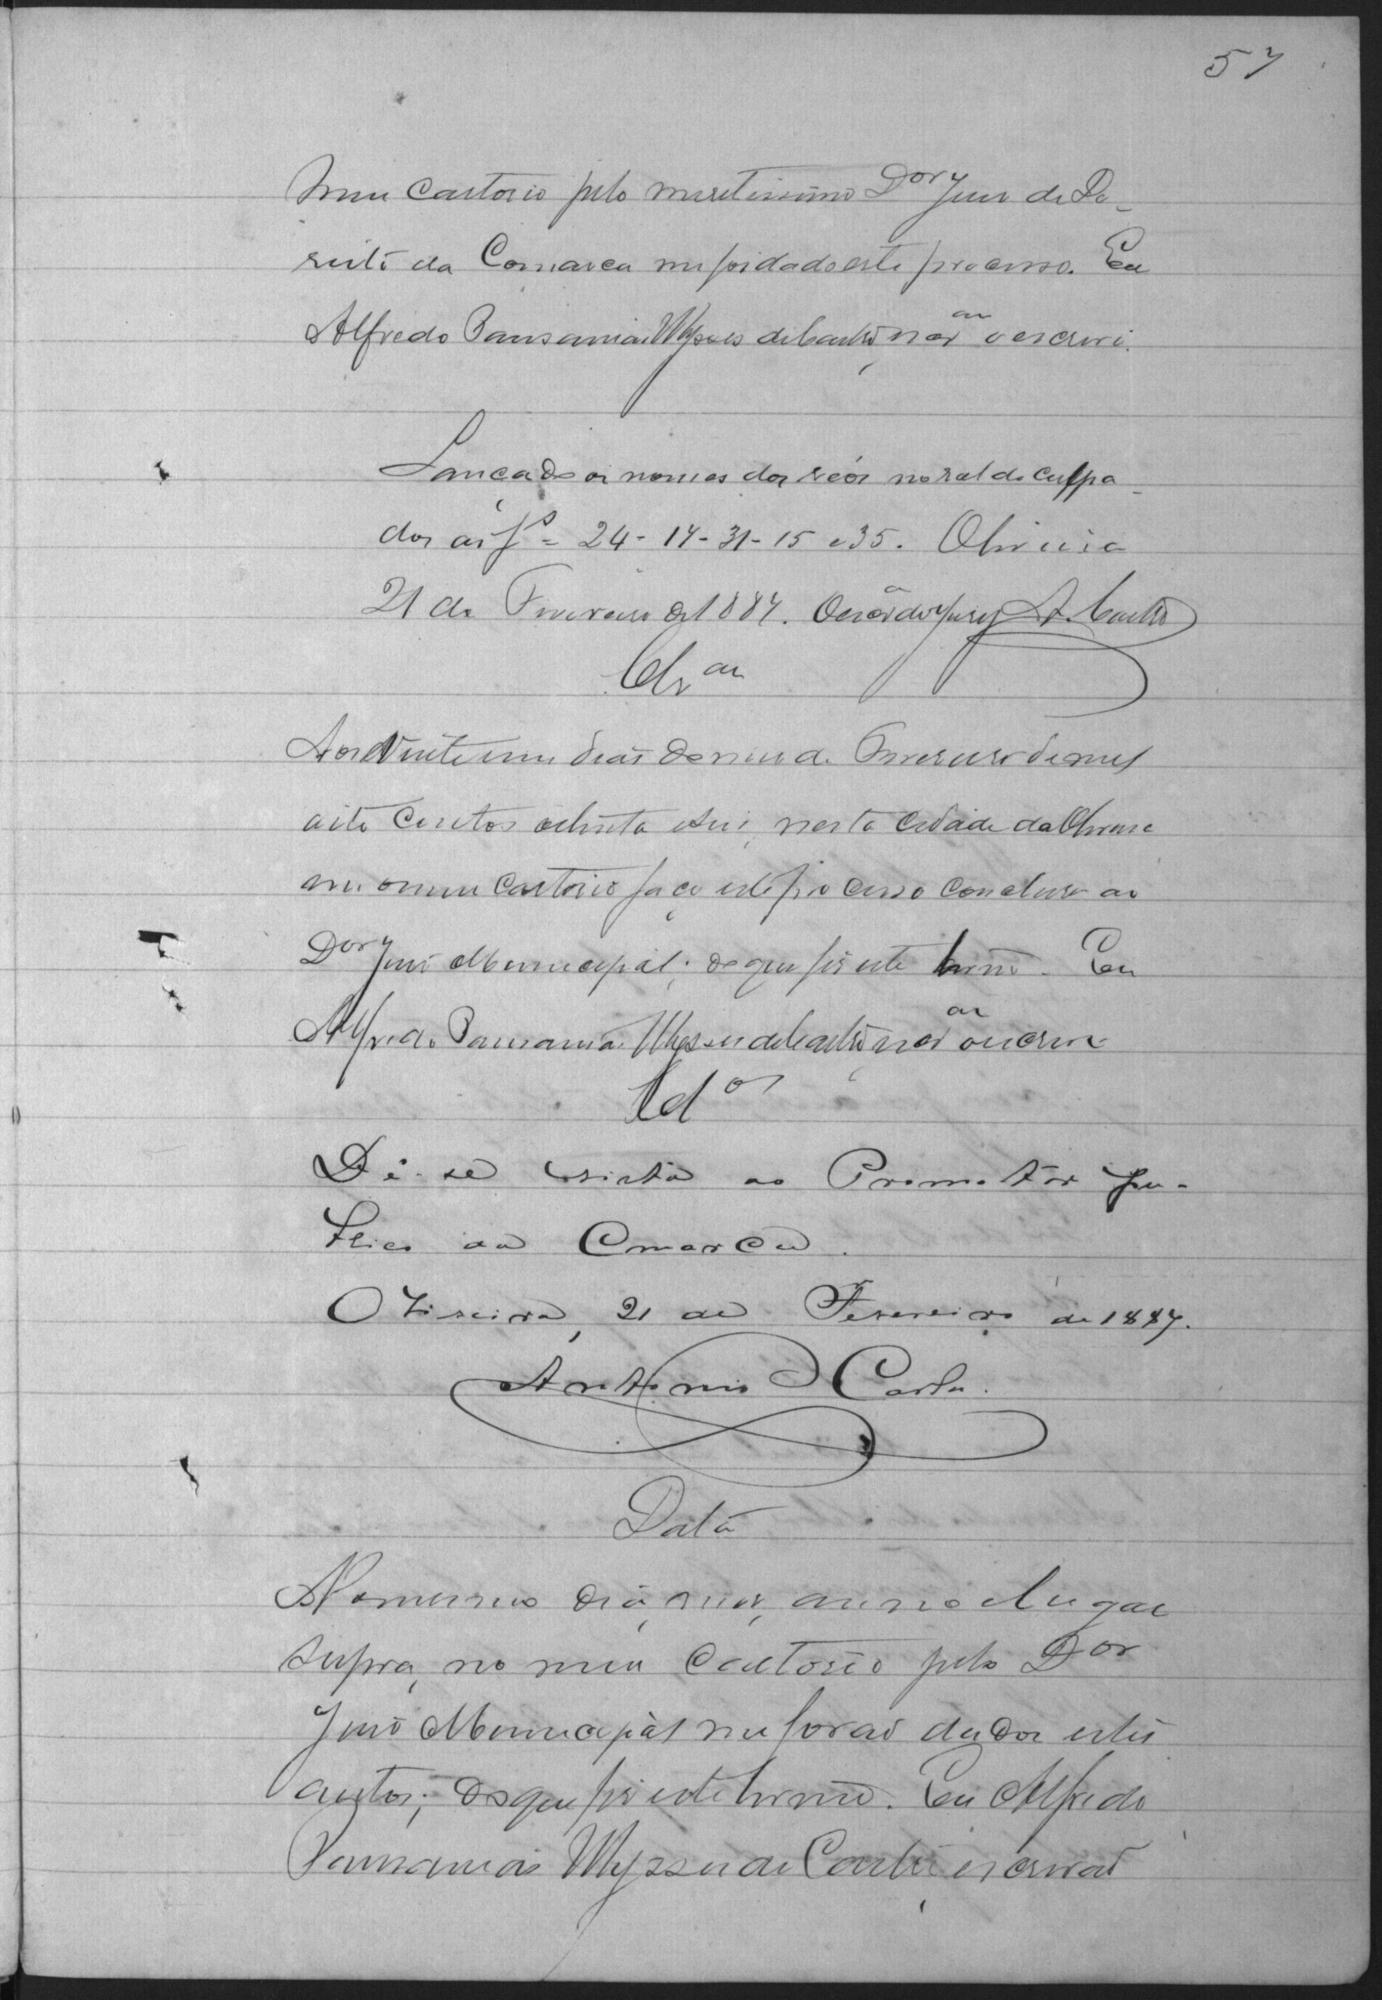 57
meu cartorio pelo meretissimo Dor Juiz de Di-
reito da Comarca me foi dado este processo. Eu
Alfredo Pausanias Ulysses de Castro, escram o escrevi.
Lançado os nomes dos réos no rol de culpa-
dos ás fs = 24 - 17 - 31 - 15 e 35. Oliveira
21 de Fevereiro de 1887. O escram do Jury A. Castro
Clsam
Aos vinte um dias do mez de Fevereiro de mil
oito centos oitenta e sete, nesta Cidade da Oliveira
em o meu Cartorio faço este processo concluso ao
Dor Juiz Municipal; do que fiz este termo. Eu
Alfredo Pausanias Ulysses de Castro, escram o escrevi
Clos
Dê-se vista ao Promotor Pu-
blico da Comarca.
Oliveira, 21 de Fevereiro de 1887.
Antonio
Data
No mesmo dia, mez, anno e lugar
supra, no meu Cartorio pelo Dor
Juiz Municipal me forão dados estes
autos; do que fiz este termo. Eu Alfredo
Pausanias Ulysses de Castro, escrivão